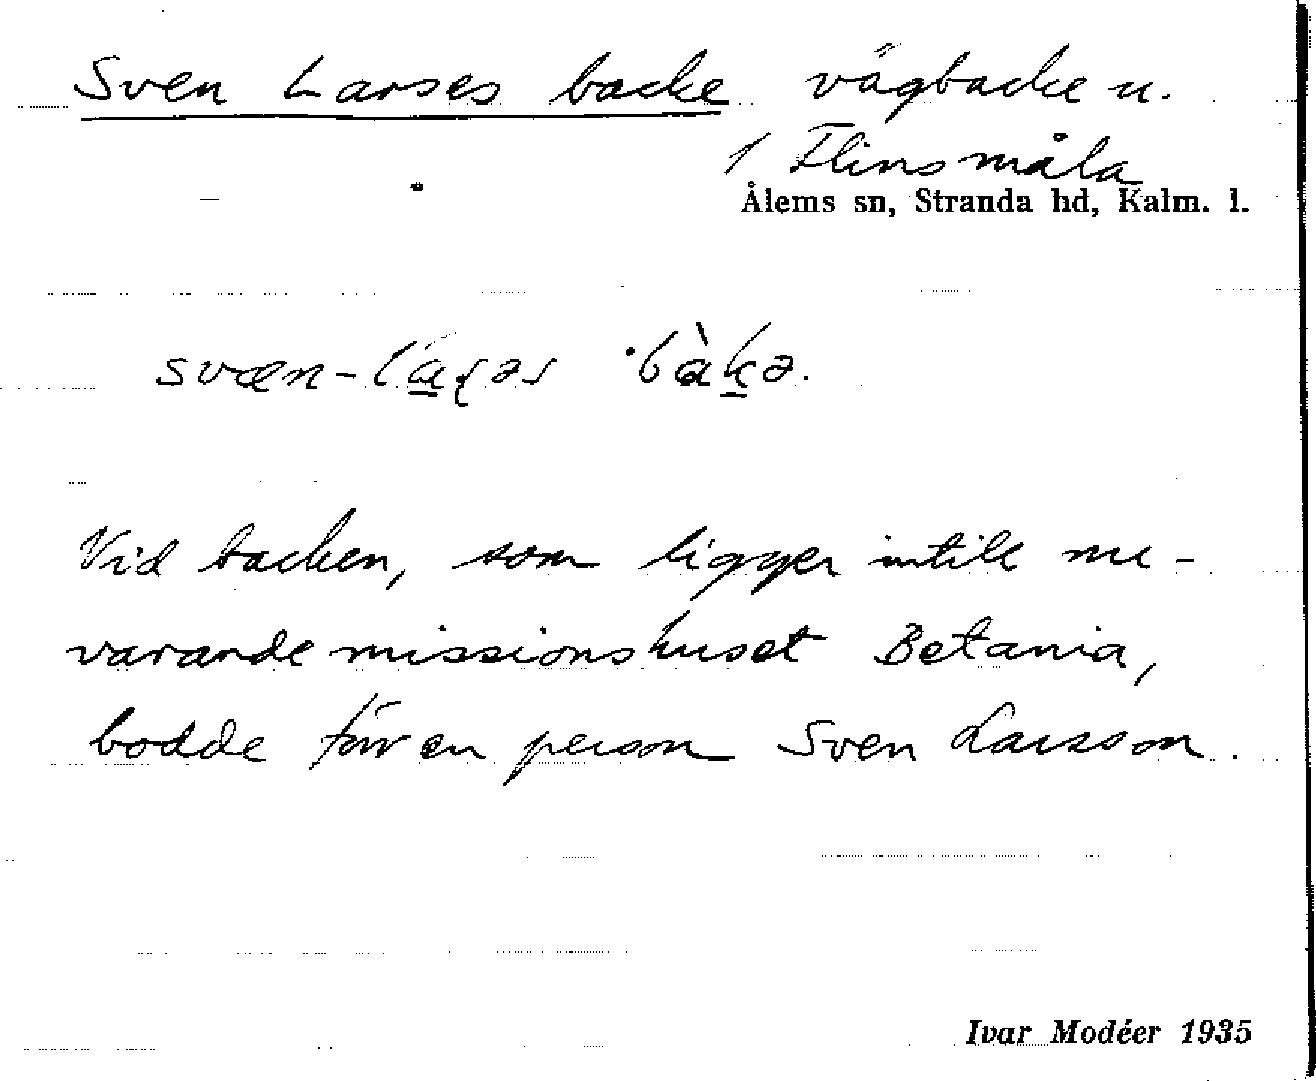 Sven Larses backe vägbacke u.
1 Flinsmåla
Ålems sn, Stranda hd, Kalm. l.
Vid backen, som ligger intill nu-
varande missionshuset Betania,
bodde förr en person Sven Larsson.
Ivar Modéer 1935